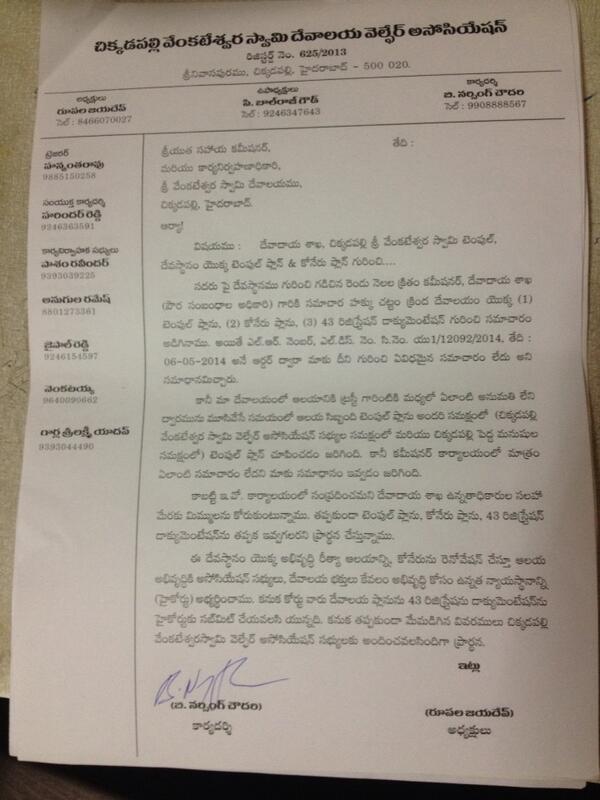 చిక్కడపల్లి వేంకటేశ్వర స్వామి దేవాలయ వెల్ఫేర్ అసోసియేషన్
రిజిస్టర్డ్ నెం. 625/2013
శ్రీనివాసపురము, చిక్కడపల్లి, హైదరాబాద్ - 500 020.
అధ్యక్షులు
రూపల జయదేవ్
సెల్ : 8466070027
ఉపాధ్యక్షులు
సి. బాల్‌రాజ్ గౌడ్
సెల్ : 9246347643
కార్యదర్శి
బి. నర్సింగ్ చౌదరి
సెల్ : 9908888567
ట్రెజరర్
హన్మంతరావు
9885150258
సంయుక్త కార్యదర్శి
హరిందర్ రెడ్డి
9246363591
కార్యనిర్వాహక సభ్యులు
పాశం రవీందర్
9393039225
అనుగుల రమేష్
8801273361
జైపాల్ రెడ్డి
9246154597
వెంకటయ్య
9640090662
గార్ల శ్రీలక్ష్మీ యాదవ్
9393044490
శ్రీయుత సహాయ కమీషనర్, తేది :
మరియు కార్యనిర్వహణాధికారి,
శ్రీ వేంకటేశ్వర స్వామి దేవాలయము,
చిక్కడపల్లి, హైదరాబాద్.
ఆర్యా!
విషయము : దేవాదాయ శాఖ, చిక్కడపల్లి శ్రీ వేంకటేశ్వర స్వామి టెంపుల్,
దేవస్థానం యొక్క టెంపుల్ ప్లాన్ & కోనేరు ప్లాన్ గురించి....
సదరు పై దేవస్థానము గురించి గడిచిన రెండు నెలల క్రితం కమీషనర్, దేవాదాయ శాఖ
(పౌర సంబంధాల అధికారి) గారికి సమాచార హక్కు చట్టం క్రింద దేవాలయం యొక్క (1)
టెంపుల్ ప్లాను, (2) కోనేరు ప్లాను, (3) 43 రిజిస్ట్రేషన్ డాక్యుమెంటేషన్ గురించి సమాచారం
అడిగినాము. అయితే ఎల్.ఆర్. నెంబర్, ఎల్.డిస్. నెం. సి.నెం. యు1/12092/2014, తేది :
06-05-2014 అనే ఆర్డర్ ద్వారా మాకు దీని గురించి ఏవిధమైన సమాచారం లేదు అని
సమాధానమిచ్చారు.
కానీ మా దేవాలయంలో ఆలయానికి ట్రస్టీ గారింటికి మధ్యలో ఏలాంటి అనుమతి లేని
ద్వారమును మూసివేసే సమయంలో ఆలయ సిబ్బంది టెంపుల్ ప్లాను అందరి సమక్షంలో (చిక్కడపల్లి
వేంకటేశ్వర స్వామి వెల్ఫేర్ అసోసియేషన్ సభ్యుల సమక్షంలో మరియు చిక్కడపల్లి పెద్ద మనుషుల
సమక్షంలో) టెంపుల్ ప్లాన్ చూపించడం జరిగింది. కానీ కమీషనర్ కార్యాలయంలో మాత్రం
ఏలాంటి సమాచారం లేదని మాకు సమాధానం ఇవ్వడం జరిగింది.
కాబట్టి ఇ.వో. కార్యాలయంలో సంప్రదించమని దేవాదాయ శాఖ ఉన్నతాధికారుల సలహా
మేరకు మిమ్ములను కోరుకుంటున్నాము. తప్పకుండా టెంపుల్ ప్లాను, కోనేరు ప్లాను, 43 రిజిస్ట్రేషన్
డాక్యుమెంటేషన్‌ను తప్పక ఇవ్వగలరని ప్రార్థన చేస్తున్నాము.
ఈ దేవస్థానం యొక్క అభివృద్ధి రీత్యా ఆలయాన్ని, కోనేరును రెనోవేషన్ చేస్తూ ఆలయ
అభివృద్ధికి అసోసియేషన్ సభ్యులు, దేవాలయ భక్తులు కేవలం అభివృద్ధి కోసం ఉన్నత న్యాయస్థానాన్ని
(హైకోర్టు) అభ్యర్థించాము. కనుక కోర్టు వారు దేవాలయ ప్లానును 43 రిజిస్ట్రేషను డాక్యుమెంటేషన్‌ను
హైకోర్టుకు సబ్‌మిట్ చేయవలసి యున్నది. కనుక తప్పకుండా మేమడిగిన వివరములు చిక్కడపల్లి
వేంకటేశ్వరస్వామి వెల్ఫేర్ అసోసియేషన్ సభ్యులకు అందించవలసిందిగా ప్రార్థన.
ఇట్లు
(బి. నర్సింగ్ చౌదరి)
కార్యదర్శి
(రూపల జయదేవ్)
అధ్యక్షులు